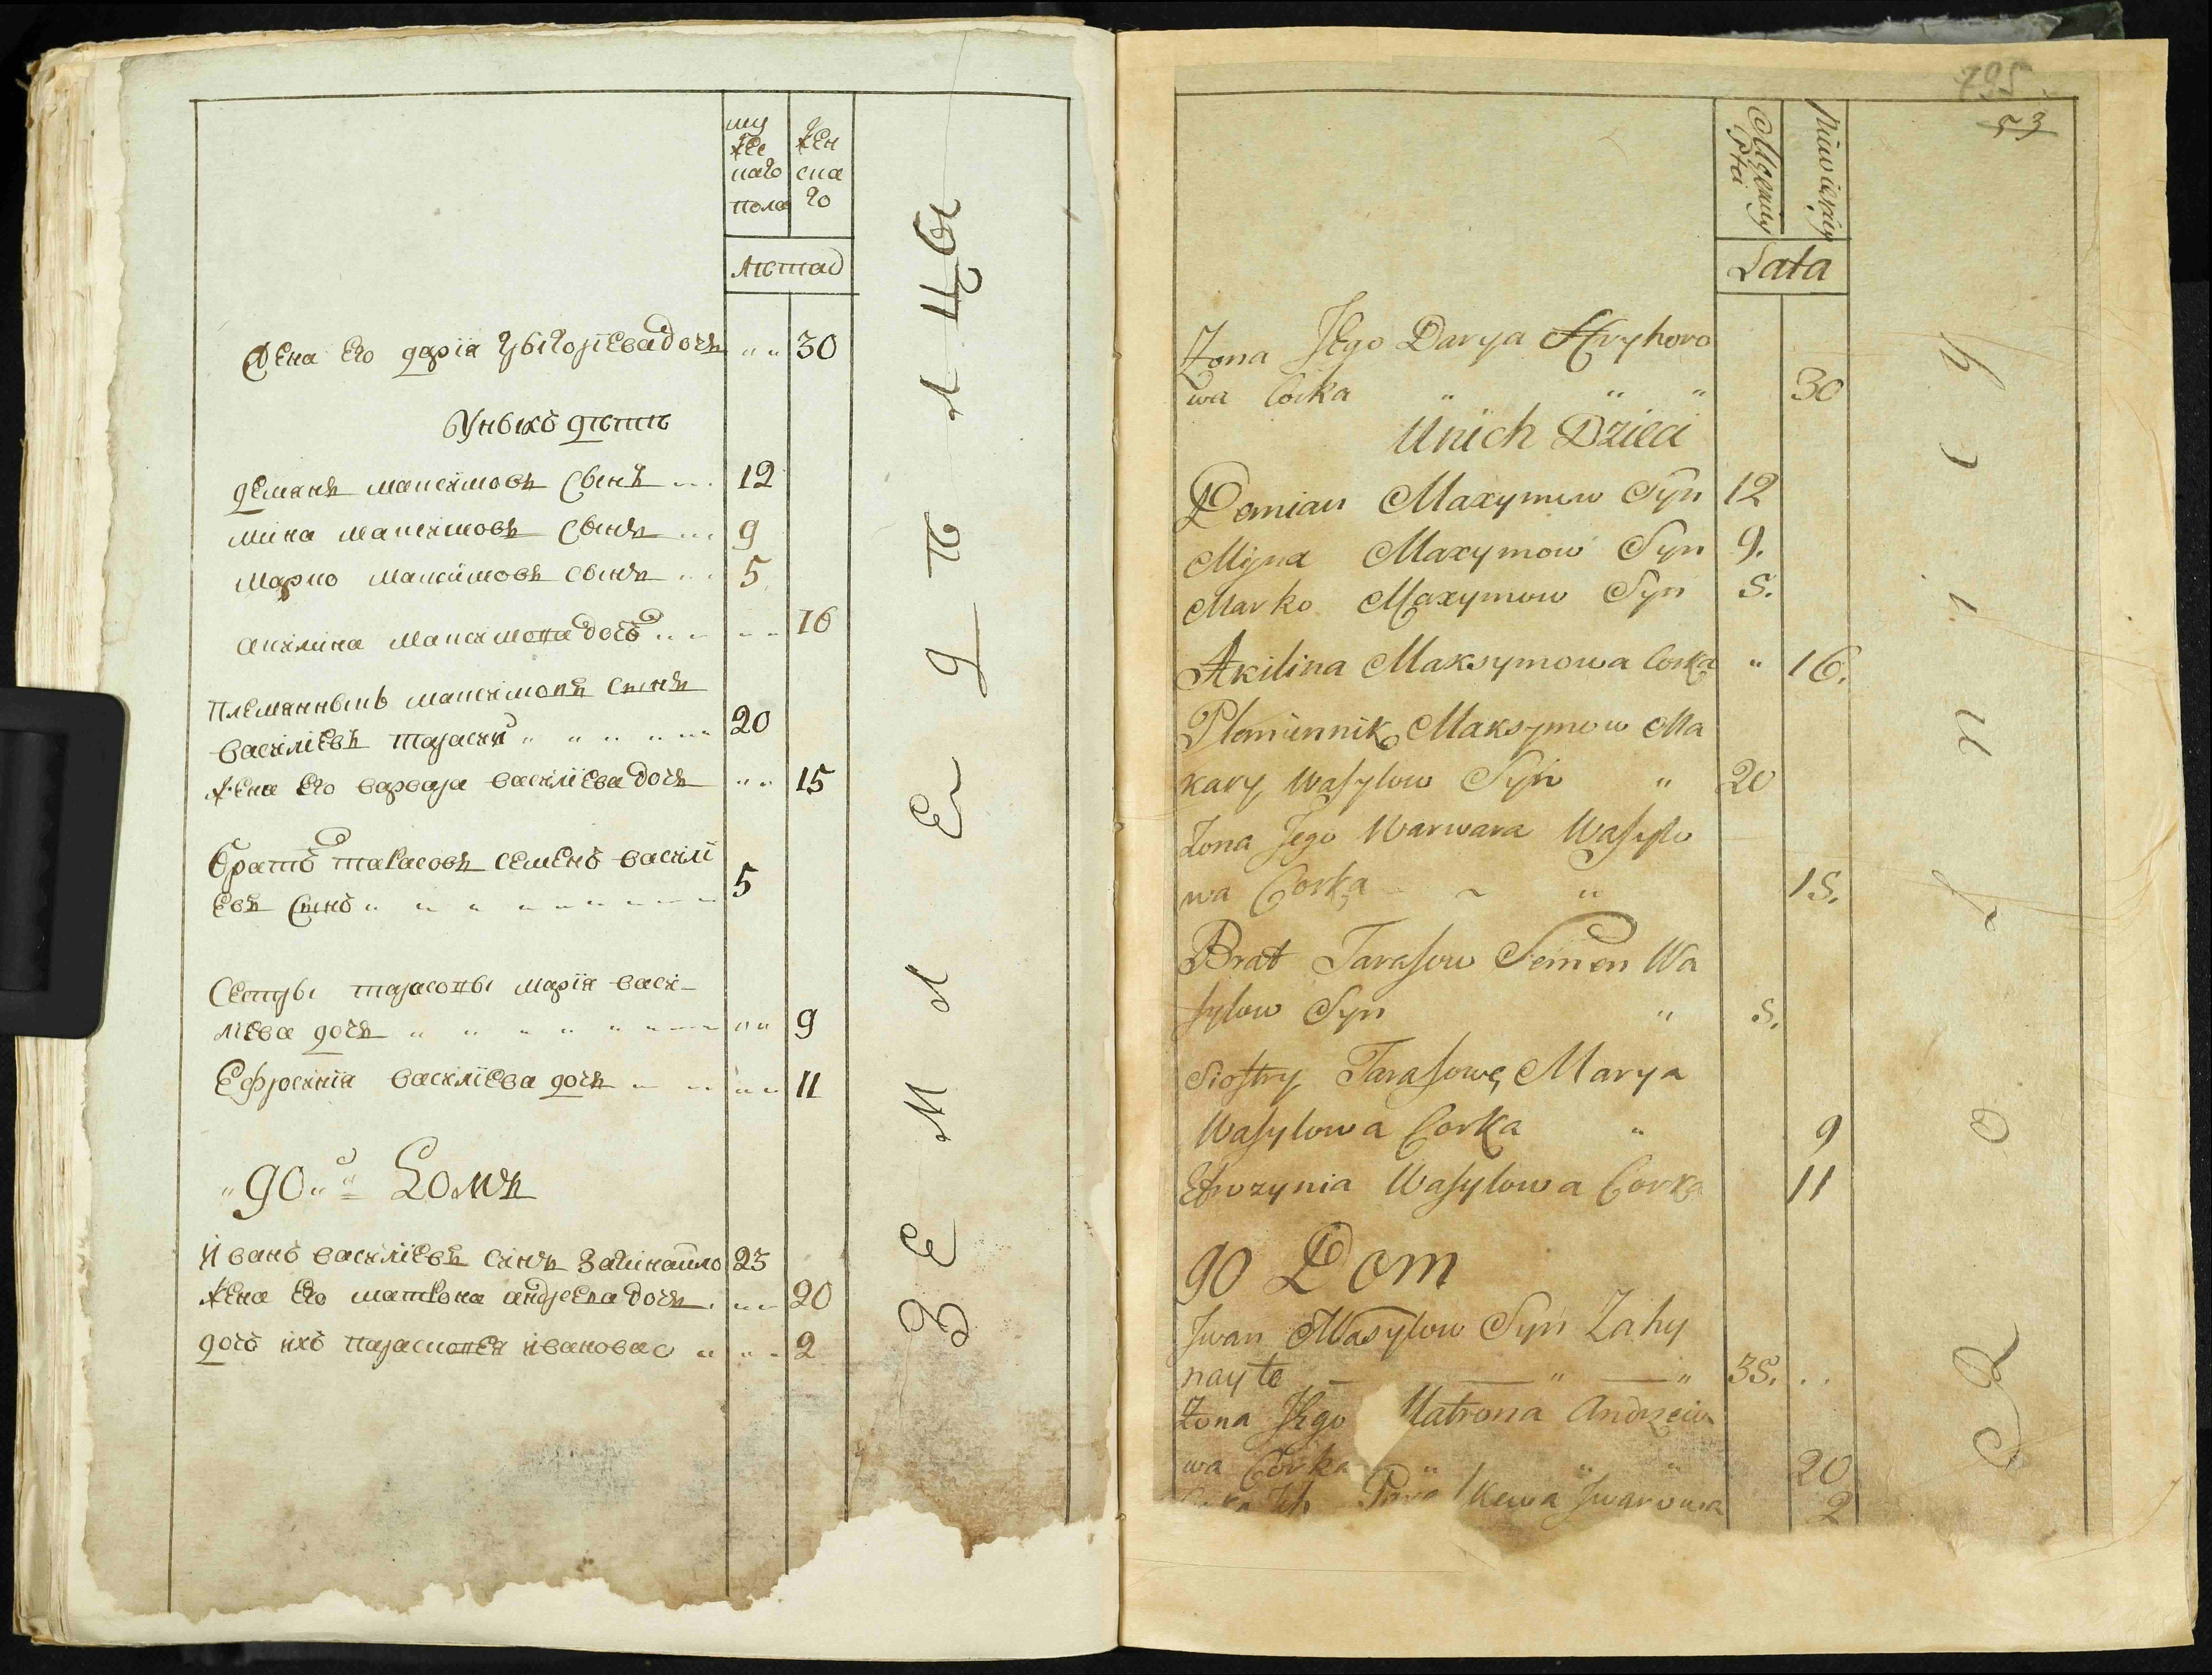 му
же
наго
пола
жен
ска
го
лѣтад
Жена его дарїя грыгорїева дочъ " " 30
Унихъ дѣти
демянъ максимовъ сынъ 12
мина максимовъ сынъ 9
марко максимовъ сынъ 5
акилина максимова дочъ 16
племянныкъ максимовъ сынъ
василїевъ тарасий " " 20
жена его варвара василїева дочъ " " 15
братъ тарасовъ семенъ василї
евъ сынъ " " 5
Сестры тарасовы марїя васи-
лїева дочъ " " 9
Ефросинїа василїева дочъ 11
" 90 " й Домъ
Иванъ василїевъ синъ Загинайло 23
жена его матрона андреева дочъ 20
дочъ ихъ парасковея иванова 2
ЗЕМЛЕДѢЛЦЫ
195
53
Męskiey
Płci
Niewieskiey
Lata
Zona Jego Darya Hryhoro
wa Corka " " " 30
Unich Dzieci
Demian Maxymow Syn 12
Myna Maxymow Syn 9.
Marko Maxymow Syn 5.
Akilina Maksymowa Corka " 16.
Plemiennik Maksymow Ma
kary Wasylow Syn " 20
Zona Jego Warwara Wasylo
wa Corka " 15.
Brat Tarasow Semen Wa
sylow Syn " 5.
Siostry Tarasowe Marya
Wasylowa Corka " 9
Efrozynia Wasylowa Corka 11
90 Dom
Iwan Wasylow Syn Zahy
nayło " " 35. . .
Zona Jego Matrona Andrzeio
wa Corka " " " 20
Corka Ich Para skewa Iwanowa 2
Rolnicy